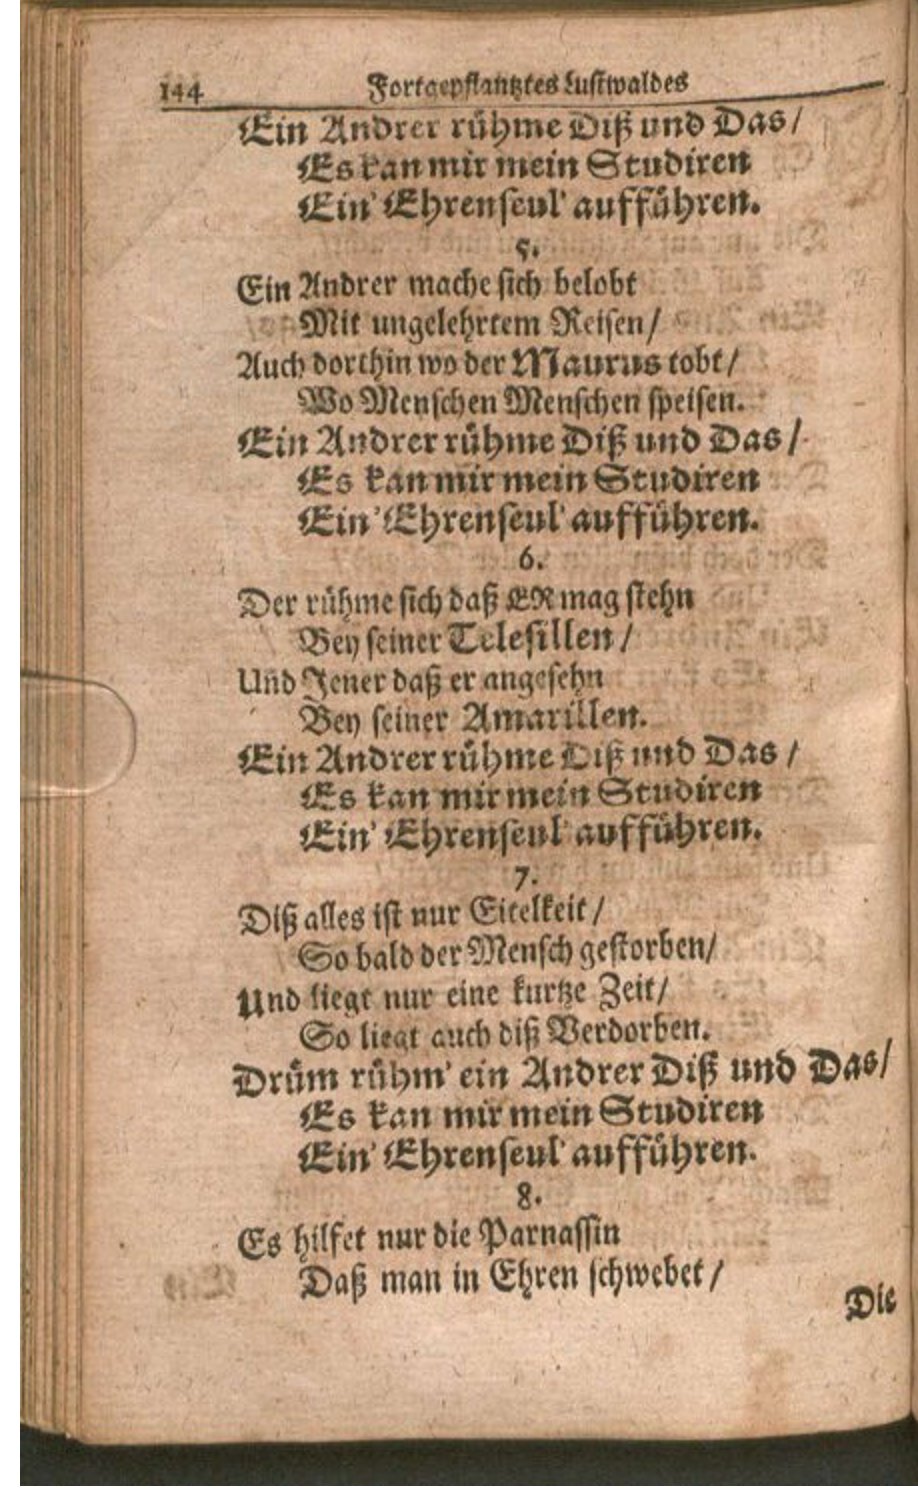 144 Fortgepflantztes Lustwaldes
Ein Andrer rühme Diß und Das/
Es kan mir mein Studiren
Ein' Ehrenseul' aufführen.
5.
Ein Andrer mache sich belobt
Mit ungelehrtem Reisen/
Auch dorthin wo der Maurus tobt/
Wo Menschen Menschen speisen.
Ein Andrer rühme Diß und Das/
Es kan mir mein Studiren
Ein' Ehrenseul' aufführen.
6.
Der rühme sich daß ER mag stehn
Bey seiner Telesillen/
Und Jener daß er angesehn
Bey seiner Amarillen.
Ein Andrer rühme Diß und Das/
Es kan mir mein Studiren
Ein' Ehrenseul' aufführen.
7.
Diß alles ist nur Eitelkeit/
So bald der Mensch gestorben/
Und liegt nur eine kurtze Zeit/
So liegt auch diß Verdorben.
Drüm rühm' ein Andrer Diß und Das/
Es kan mir mein Studiren
Ein' Ehrenseul' aufführen.
8.
Es hilfet nur die Parnassin
Daß man in Ehren schwebet/
Die